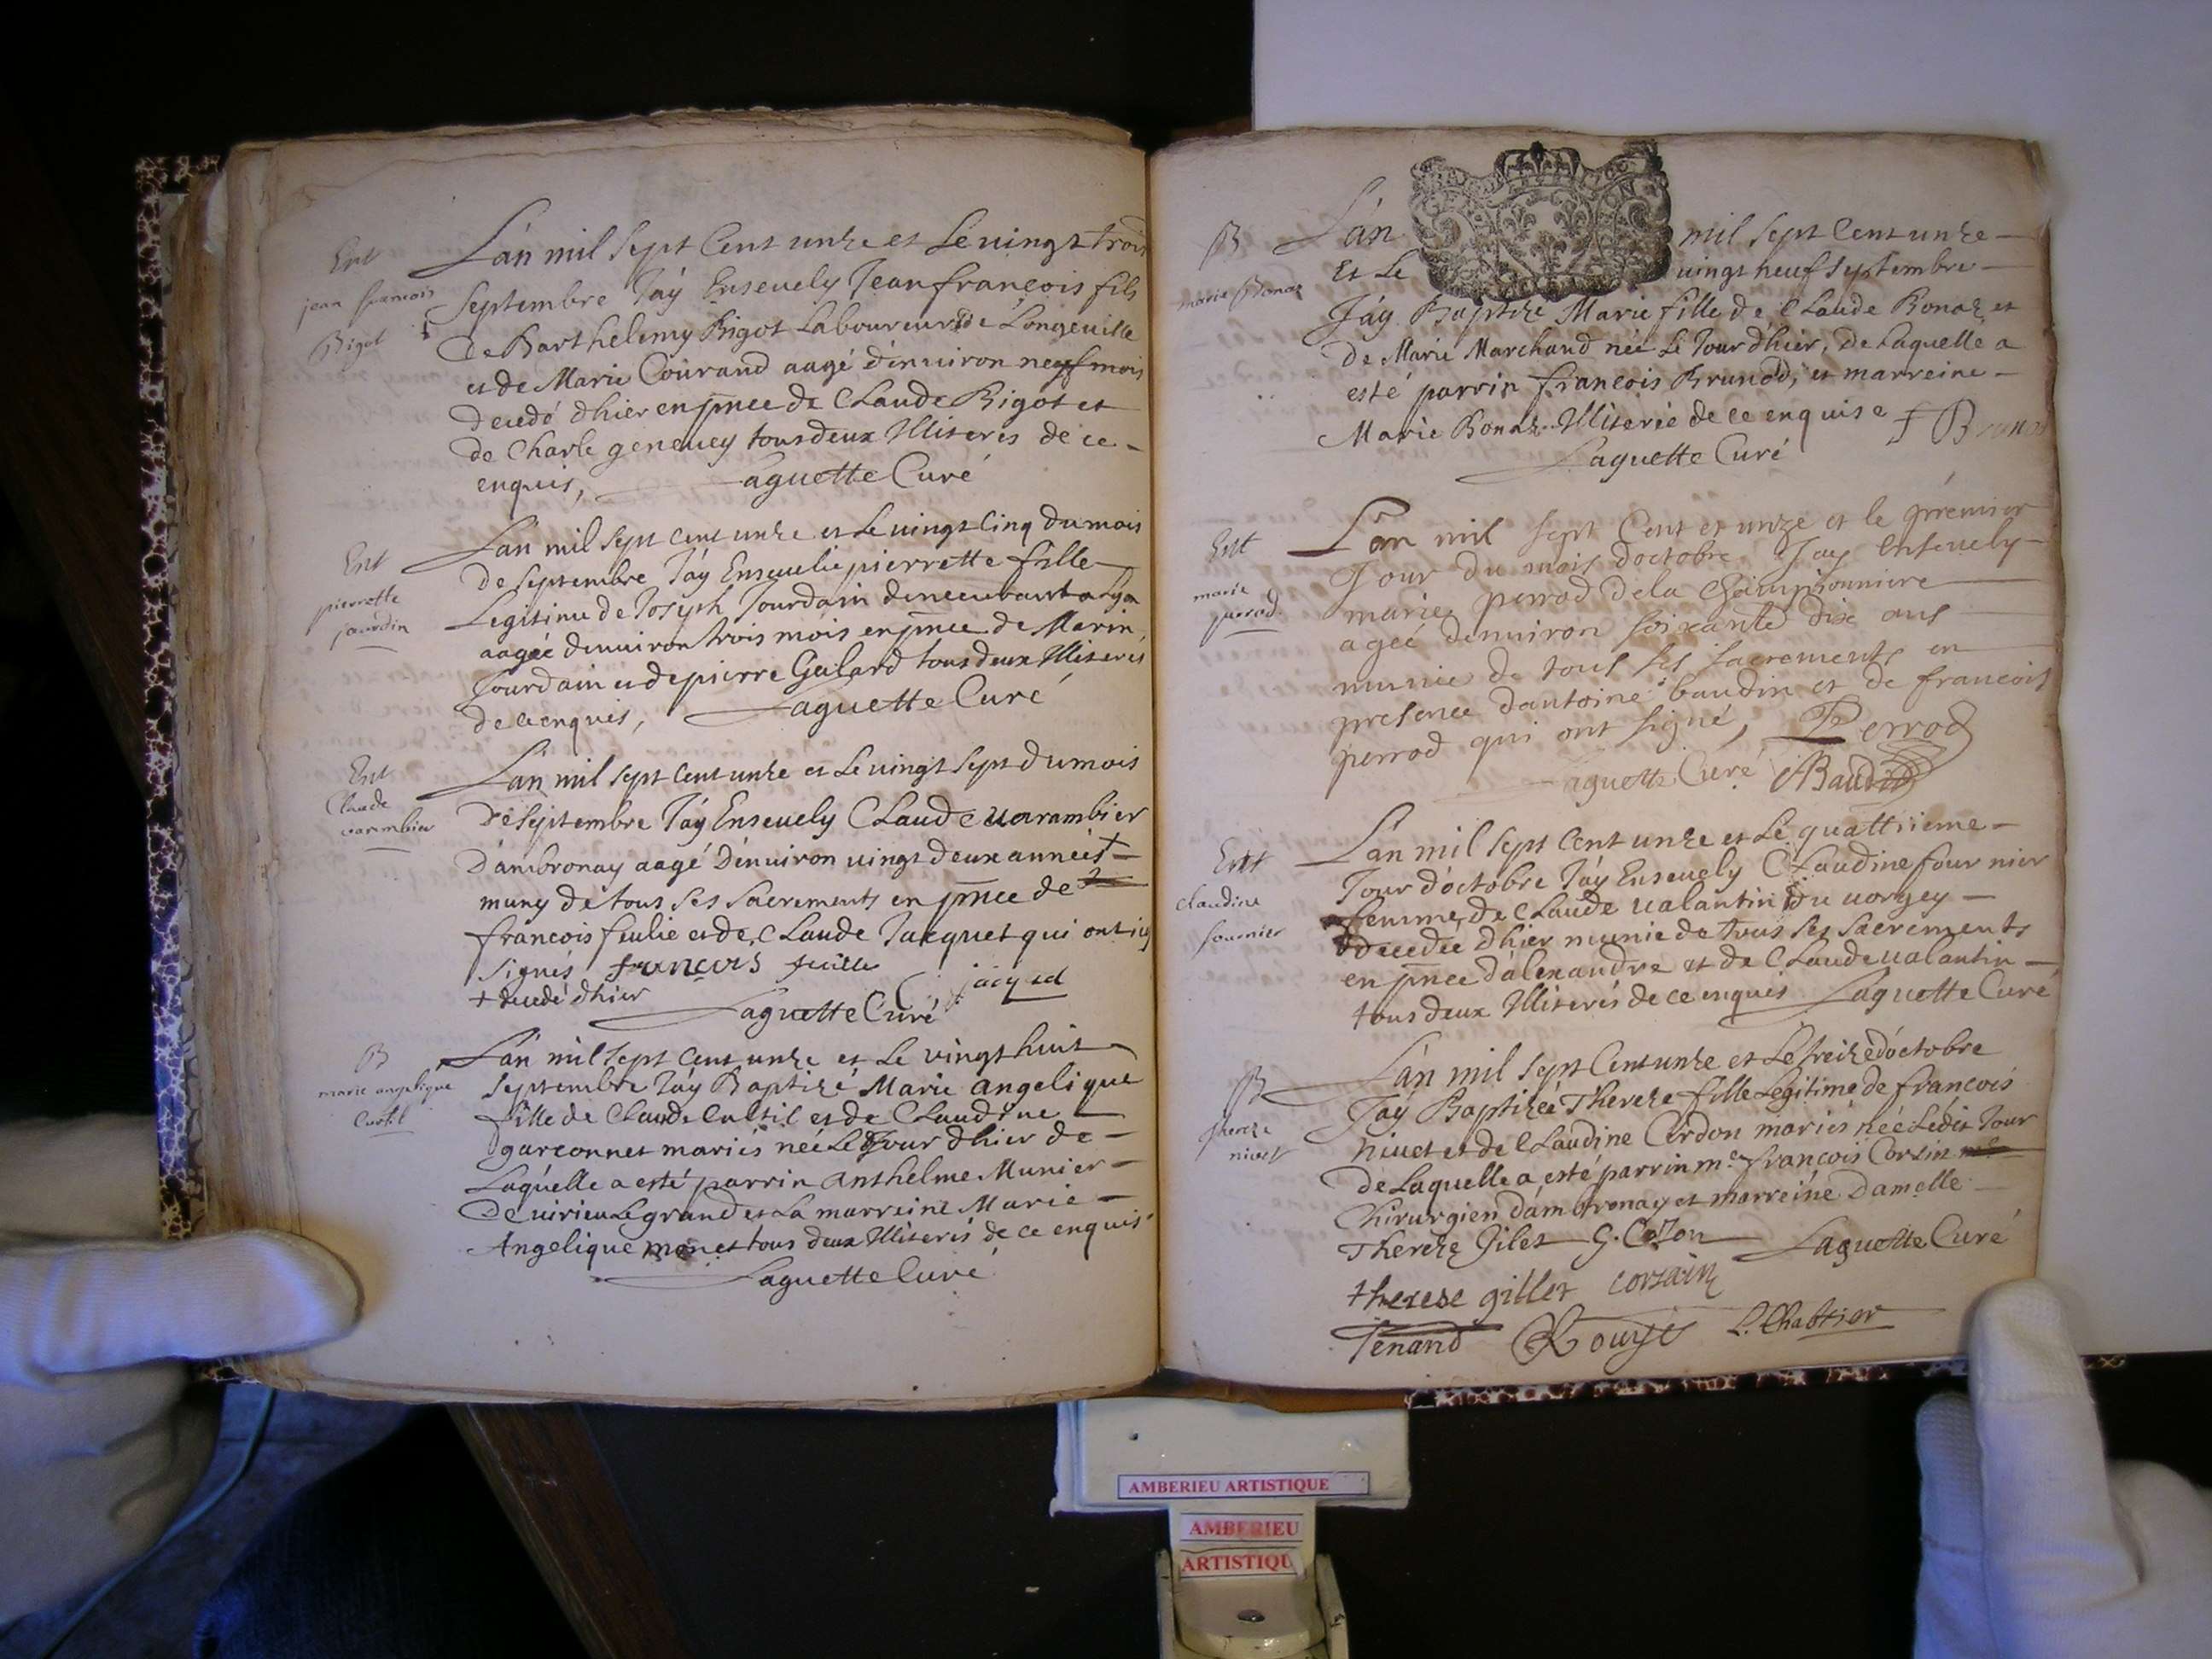 Ent
jean francois
Bigot
L'an mil sept Cent unze et Le uingt trois
Septembre J'ay Enseuely Jean francois fils
De Barthelemy Bigot Laboureur de Longeuille
et de Marie Courand aagé d'enuiron neuf mois
decedé d'hier en pnce de Claude Bigot et
de Charle geneuey tous deux Illiterés de ce
enquis, Laguette Curé
Ent
pierrette
jourdin
L'an mil sept cent unze et Le uingt Cinq du mois
de Septembre J'ay Enseuelie pierrette fille
Legitime de Joseph Jourdain demeurant a Lyon
aagée d'enuiron trois mois en pnce de Marin
Jourdain et de pierre Galard tous deux Illiterés
de ce enquis, Laguette Curé
Ent
Claude
varambier
L'an mil sept Cent unze et Le uingt sept du mois
De Septembre J'ay Enseuely Claude uarambier
D'ambronay aagé D'enuiron uingt deux années +
muny de tous ses sacrements en pnce de
francois feulie et de Claude Jacquet qui ont icy
signés francois feuille jaquet
+ decedé d'hier Laguette Curé
B
marie angelique
Curtil
L'an mil sept Cent unze et Le vingt huit
Septembre J'ay Baptizé Marie angelique
fille de Claude Cultil et de Claudine
garconnet mariés née Le Jour d'hier de
Laquelle a esté parrin Anthelme Munier
De uirieu Le grand et La marreine Marie
Angelique monet tous deux Illiterés de ce enquis
Laguette Curé
B
marie Bonaz
L'an mil sept Cent unze
Et Le uingt neuf Septembre
J'ay Baptize Marie fille de Claude Bonaz et
de Marie Marchand née Le Jour d'hier, de Laquelle a
esté parrin francois Brunod, et marreine
Marie Bonaz Illiterée de ce enquise f Brunod
Laguette Curé
Ent
marie
perrod
L'an mil sept Cent et unze et le premier
Jour du mois d'octobre J'ay enseuely
marie perrod de la Championniere
agée d'enuiron soixante dix ans
munie de tous ses sacrements en
presence d'antoine baudin et de francois
perrod qui ont signé, Perrod
Laguette Curé ABaudin
Ent
claudine
fournier
L'an mil sept Cent unze et Le quattrieme
Jour d'octobre J'ay Enseuely Claudine fournier
femme de Claude ualantin du uorgey
decedée d'hier munie de tous ses sacrements
en pnce d'alexandre et de Claude ualantin
tous deux Illiterés de ce enquis Laguette Curé
B
thereze
niuet
L'an mil sept Cent unze et Le treize d'octobre
J'ay Baptizée Thereze fille Legitime de francois
niuet et de Claudine Cerdon mariés née Ledit Jour
de Laquelle a esté parrin me francois Corsin
Chirurgien d'ambronay et marreine Damelle
Thereze Gilet G. Cozon Laguette Curé
therese gillet corsain
Tenand L. Chattier
AMBERIEU ARTISTIQUE
AMBERIEU
ARTISTIQU